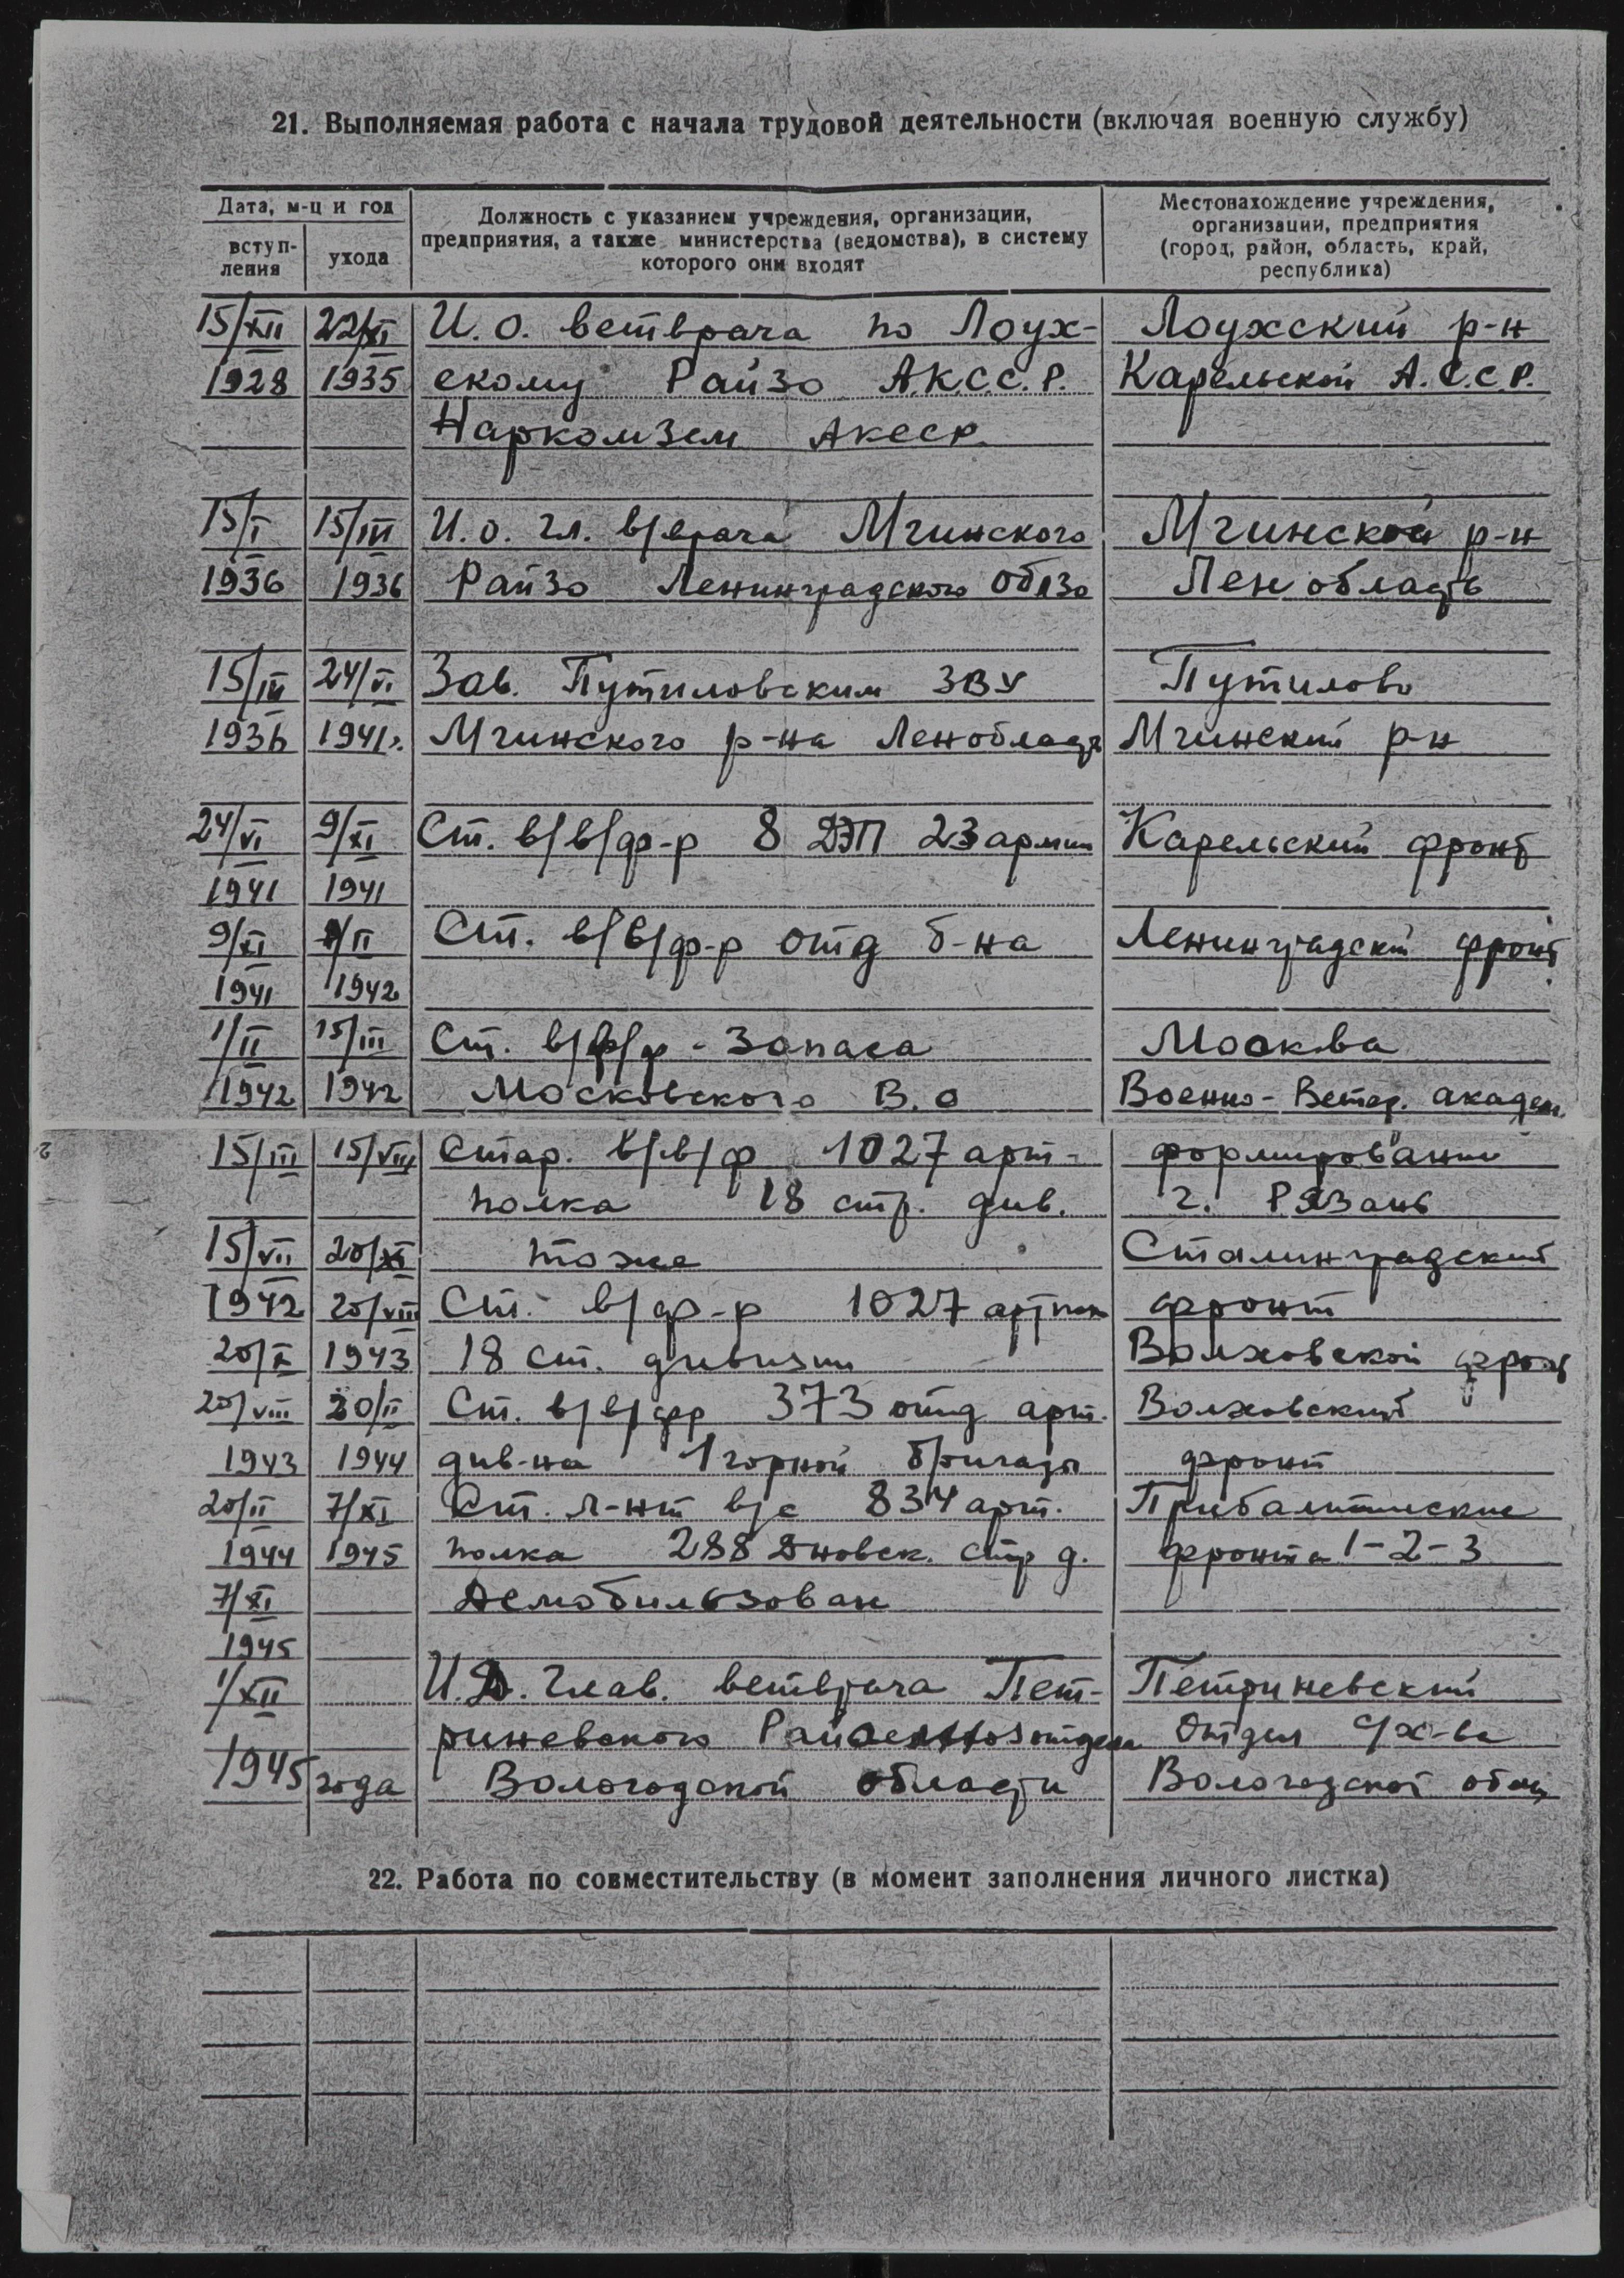 21. Выполняемая работа с начала трудовой деятельности (включая военную службу)
Дата, м-ц и год
вступ-
ления
ухода
Должность с указанием учреждения, организации,
предприятия, а также министерства (ведомства), в систему
которого они входят
Местонахождение учреждения,
организации, предприятия
(город, район, область, край,
республика)
15/XII 22/XI И. о. ветврача по Лоух- Лоухский р-н
1928 1935 скому Райзо А.К.С.С.Р. Карельской А.С.С.Р.
Наркомзем АКССР
15/I 15/III И. о. гл. в/врача Мгинского Мгинской р-н
1936 1936 Райзо Ленинградского Облзо Лен область
15/III 24/VI Зав. Путиловским ЗВУ Путилово
1936 1941г. Мгинского р-на Ленобласт Мгинский р-н
24/VI 9/XI Ст. в/в/ф-р 8 ДЭП 23 армии Карельский фронт
1941 1941
9/XI /II Ст. в/в/ф-р отд б-на Ленинградский фронт
1941 1942
1/II 15/III Ст. в/ф - запаса Москва
1942 1942 Московского В.О Военно-Ветер. академ.
15/III 15/VIII Стар. в/в/ф 1027 арт- формировании
полка 18 стр. див. г. Рязань
15/VII 20/XI тоже Сталинградский
1942 20/VIII Ст. в/ф-р 1027 артпол фронт
20/X 1943 18 ст. дивизии Волховской фронт
20/VIII 20/II Ст. в/в/фр 373 отд арт. Волховский
1943 1944 див-на 1 горной бригады фронт
20/II 7/XI Ст. л-нт в/с 834 арт. Прибалтийские
1944 1945 полка 288 Дновск. стр д. фронта 1-2-3
7/XI Демобилизован
1945
1/XII И.Д. Глав. ветврача Пет- Петриневский
риневского Отдел с/х-ва
1945 года Вологодской области Вологодской обл
22. Работа по совместительству (в момент заполнения личного листка)